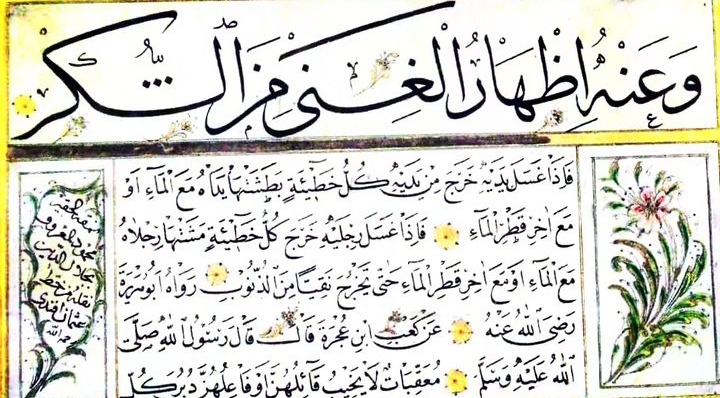 وَعَنْهُ اِظْهَارُ الْغِنىٰ مِنَ الشُّكْرِ
فَاِذَا غَسَلَ يَدَيْهِ خَرَجَ مِنْ يَدَيْهِ كُلُّ خَطِيئَةٍ بَطَشَتْهَا يَدَاهُ مَعَ الْمَاءِ اَوْ
مَعَ اٰخِرِ قَطْرِ الْمَاءِ فَاِذَا غَسَلَ رِجْلَيْهِ خَرَجَ كُلُّ خَطِيئَةٍ مَشَتْهَا رِجْلَاهُ
مَعَ الْمَاءِ اَوْ مَعَ اٰخِرِ قَطْرِ الْمَاءِ حَتّٰى تَخْرُجَ نَقِيًّا مِنَ الذُّنُوبِ رَوَاهُ اَبُو هُرَيْرَةَ
رَضِىَ اللّٰهُ عَنْهُ عَنْ كَعْبِ ابْنِ عُجْرَةَ قَالَ قَالَ رَسُولُ اللّٰهِ صَلَّى
اللّٰهُ عَلَيْهِ وَسَلَّمَ مُعَقِّبَاتٌ لَا يَخِيبُ قَائِلُهُنَّ اَوْ فَاعِلُهُنَّ دُبُرَ كُلِّ
محمود المعروف
بجلال الدين
نقله من خط
عثمان افندى
رحمه الله